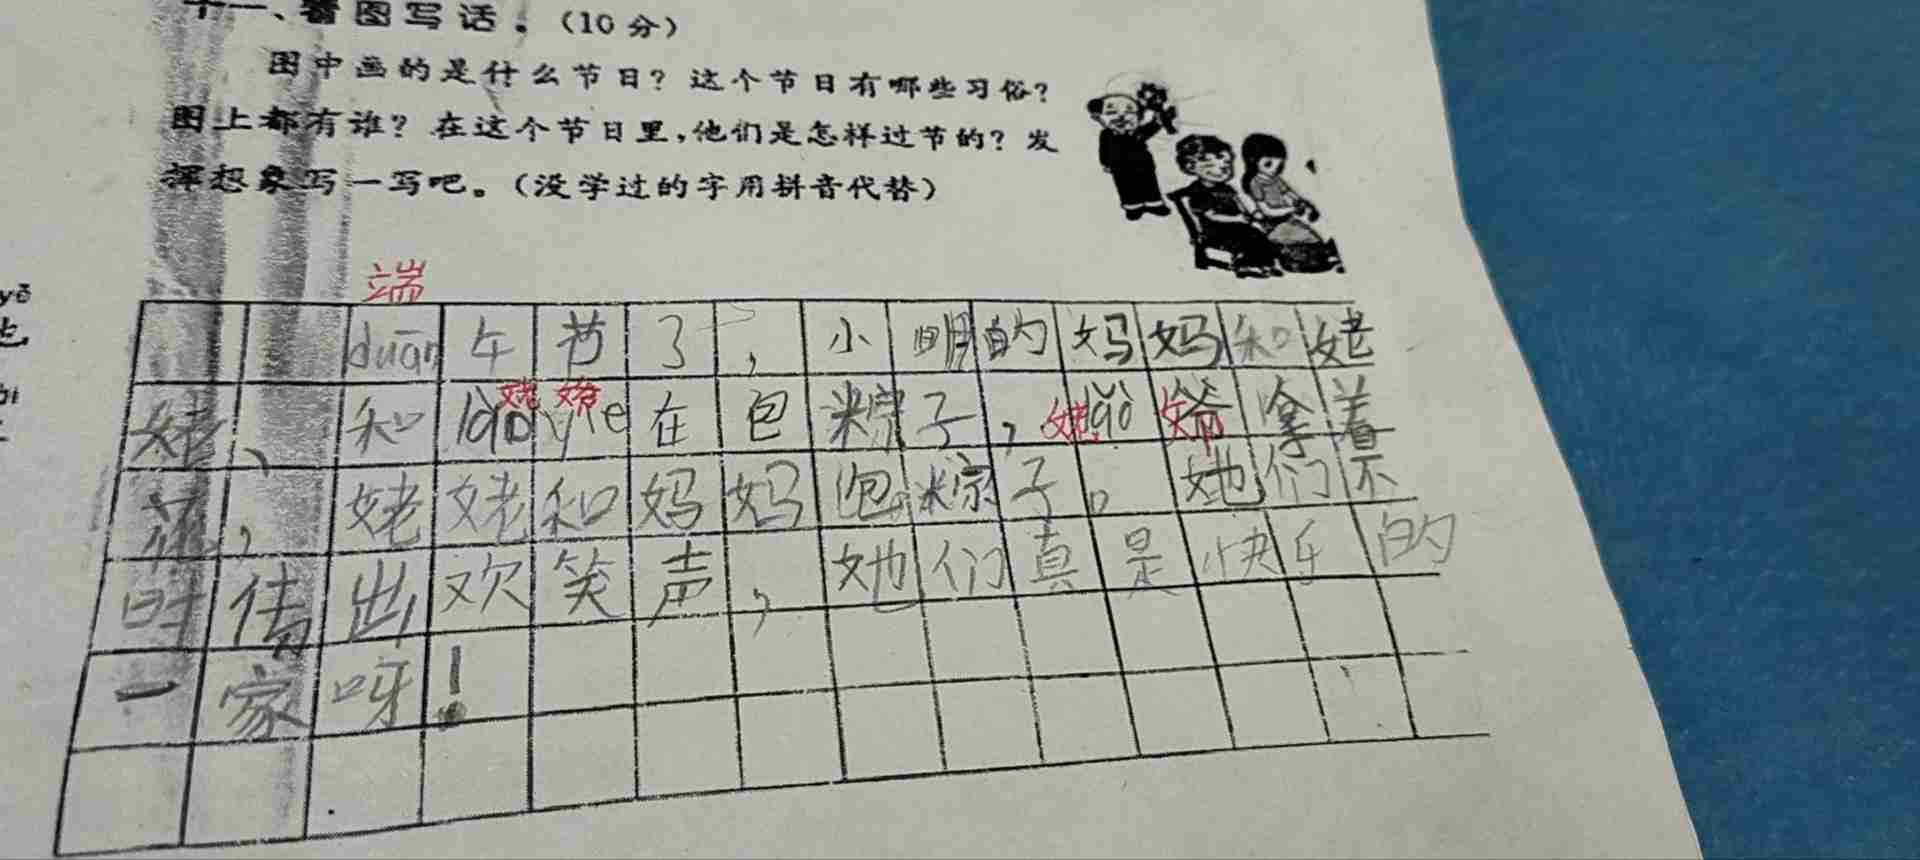 十一、看图写话。(10分)
图中画的是什么节日?这个节日有哪些习俗?
图上都有谁?在这个节日里,他们是怎样过节的?发
挥想象写一写吧。(没学过的字用拼音代替)
端
duān午节了,小明的妈妈和姥
姥、和lǎo yie在包粽子,lǎo爷拿着
花,姥姥和妈妈包粽子。她们不
时传出欢笑声,她们真是快乐的
一家呀!